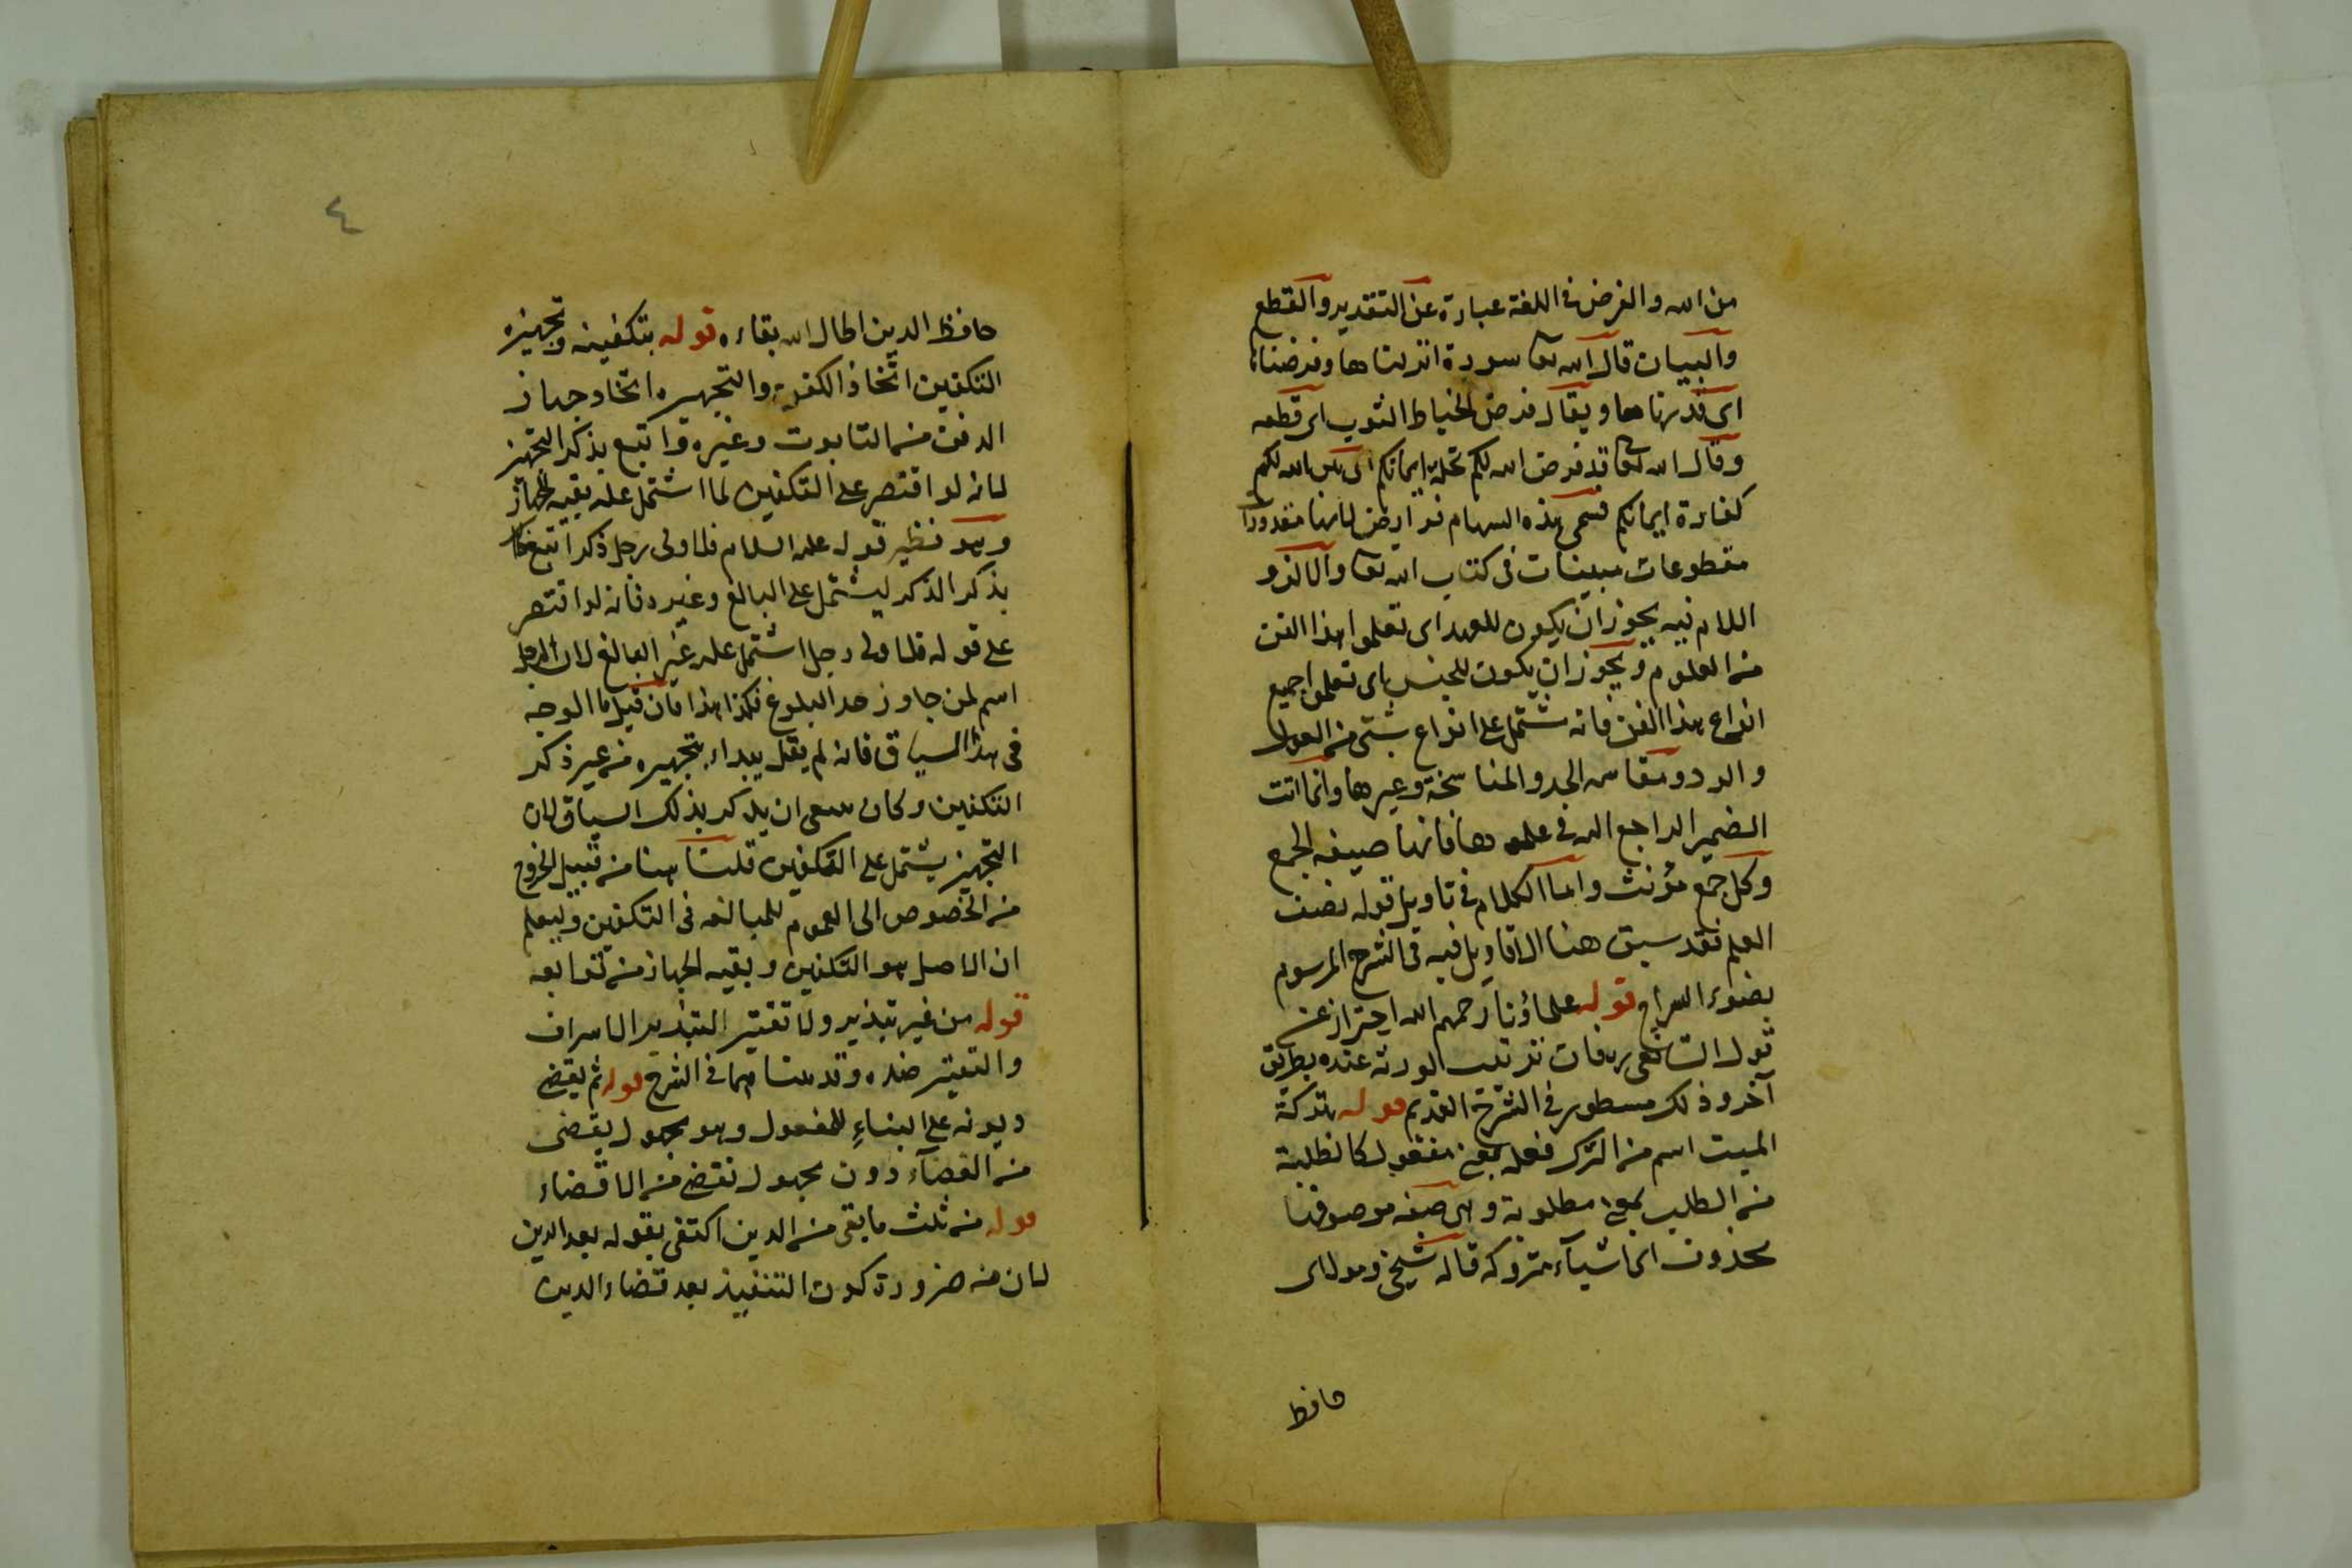 من الله والفرض في اللغة عبارة عن التقدير والقطع
والبيان قال الله تعا سورة انزلناها وفرضناها
اى قدرناها ويقال فرض الخياط الثوب اى قطعه
وقال الله تعا قد فرض الله لكم تحلة ايمانكم اى بين الله لكم
كفارة ايمانكم فسمى هذه السهام فرايض لانها مقدورات
مقطوعات مبينات فى كتاب الله تعا والالف و
اللام فيه يجوز ان يكون للعهد اى تعلموا هذا الفن
من العلوم ويجوز ان يكون للجنس اى تعلموا جميع
انواع هذا الفن فانه يشتمل على انواع شتى من العول
والرد ومقاسمه الجد والمناسخة وغيرها وانما انث
الضمير الراجع اليه في علموها فانها صيغه الجمع
وكل جمع مؤنث واما الكلام في تاويل قوله نصف
العلم فقد سبق هنا الاقاويل فيه فى الشرح المرسوم
بضوء السراج قوله علماؤنا رحمهم الله احتراز عن
قول الشافعى رح فان ترتيب الورثه عنده بطريق
آخر وذلك مسطور في الشرح القديم قوله بتركة
الميت اسم من الترك فعله بمعنى مفعول كالطلبة
من الطلب بمعنى مطلوبة وهى صفه موصوفها
محذوف اى اشياء متروكه قاله شيخى ومولاى
حافظ
٤
حافظ الدين اطال الله بقاءه قوله بتكفينه وتجهيزه
التكفين اتخاذ الكفن والتجهيز اتخاذ جهاز
الدفن من التابوت وغيره واتبع بذكر التجهيز
لانه لو اقتصر على التكفين لما اشتمل عليه بقيه الجهاز
وهو نظير قوله عليه السلام فلاولى رجل ذكر اتبع
بذكر الذكر ليشتمل على البالغ وغيره فانه لو اقتصر
على قوله فلاولى رجل اشتمل عليه غير البالغ لان الرجل
اسم لمن جاوز حد البلوغ فكذا هذا فان قيل ما الوجه
فى هذا السياق فانه لم يقل يبداء بتجهيزه من غير ذكر
التكفين وكان ينبغى ان يذكر بذلك السياق لان
التجهيز يشتمل على التكفين قلنا هنا من قبيل الخروج
من الخصوص الى العموم للمبالغه فى التكفين وليعلم
ان الاصل هو التكفين وبقيه الجهاز من توابعه
قوله من غير تبذير ولا تقتير التبذير الاسراف
والتقتير ضده وقد بيناهما في الشرح قوله ثم يقضى
ديونه على البناء للمفعول وهو مجهول يقضى
من القضاء دون مجهول نقضى من الاقضاء
قوله من ثلث ما بقى من الدين اكتفى بقوله بعد الدين
لان من ضرورة كون التنفيذ بعد قضاء الدين